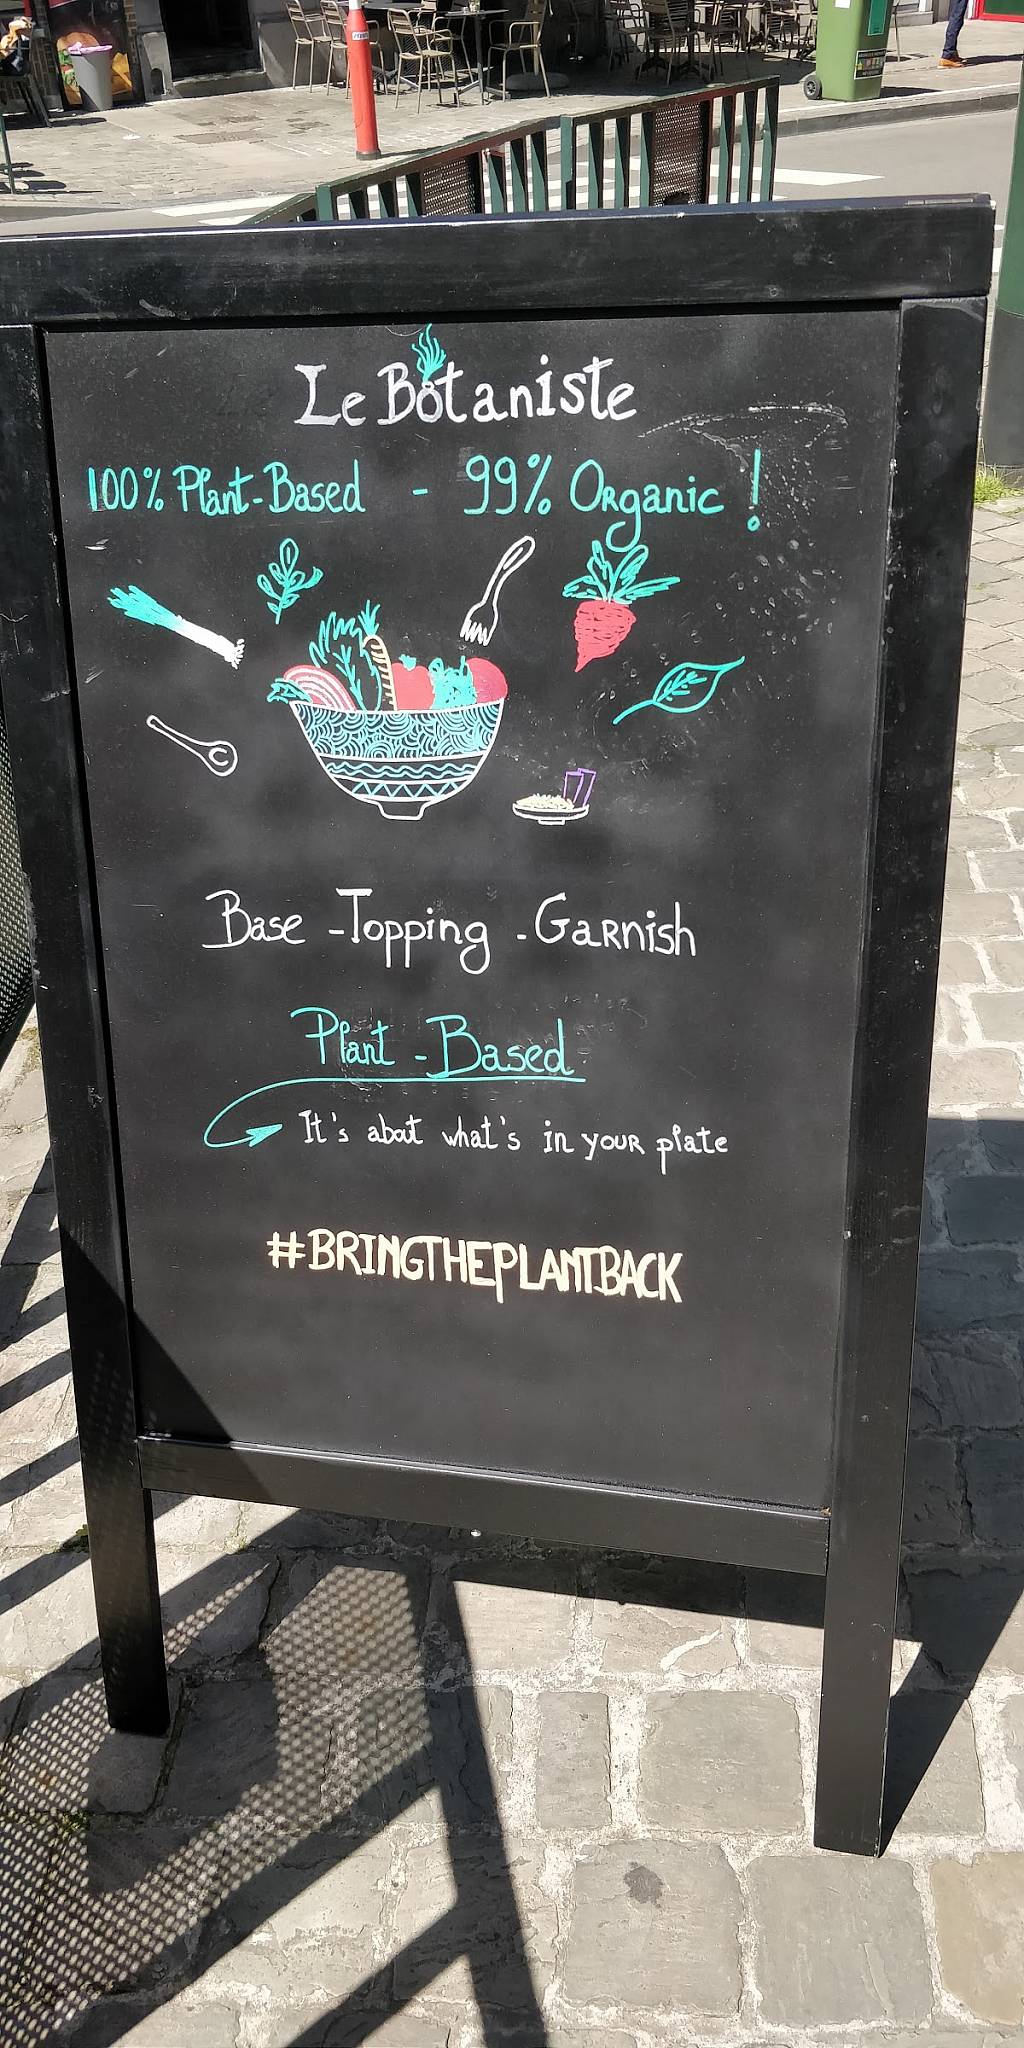 Le Botaniste
100% Plant-Based - 99% Organic !
Base - Topping - Garnish
Plant - Based
It's about what's in your plate
#BRINGTHEPLANTBACK